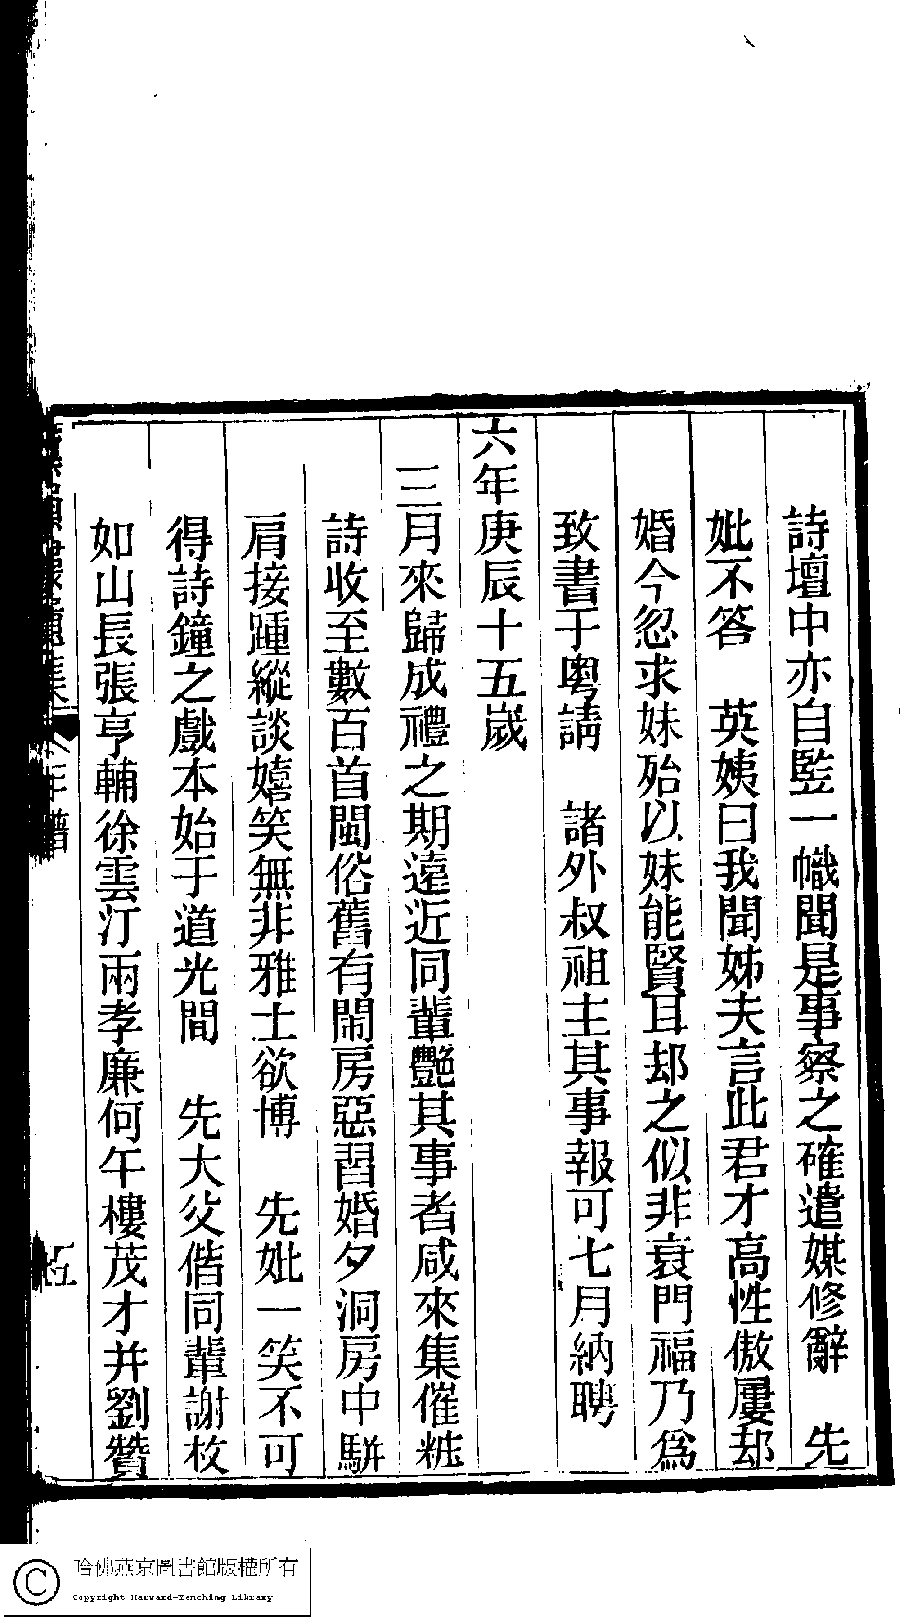 詩壇中亦自豎一幟聞是事察之確遣媒修辭　先
妣不答　英姨曰我聞姊夫言此君才高性傲屢却
婚今忽求妹殆以妹能賢耳却之似非衰門福乃爲
致書于粵請　諸外叔祖主其事報可七月納聘
六年庚辰十五歲
三月來歸成禮之期遠近同輩艷其事者咸來集催粧
詩收至數百首閩俗舊有鬧房惡習婚夕洞房中駢
肩接踵縱談嬉笑無非雅士欲博　先妣一笑不可
得詩鐘之戲本始于道光間　先大父偕同輩謝枚
如山長張亨輔徐雲汀兩孝廉何午樓茂才并劉贊
年譜
五
哈佛燕京圖書館版權所有
Copyright Harvard-Yenching Library